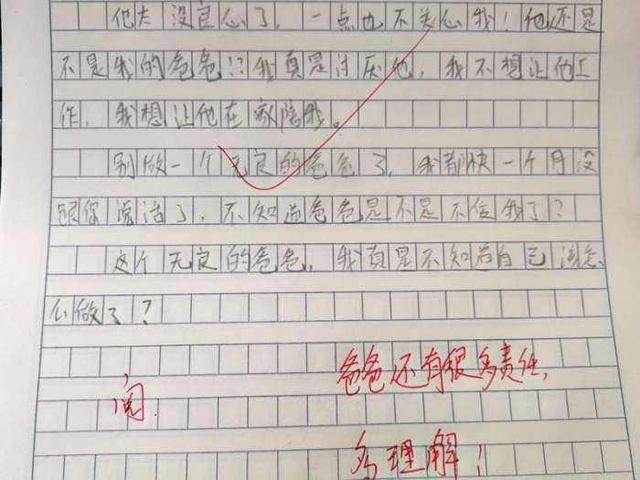 他太没良心了，一点也不关心我！他还是
不是我的爸爸！？我真是讨厌他，我不想让他工
作，我想让他在家陪我。
别做一个无良的爸爸了，我都快一个月没
跟你说话了，不知道爸爸是不是不信我了？
这个无良的爸爸，我真是不知道自己该怎
么做了？
爸爸还有很多责任，
阅
多理解！